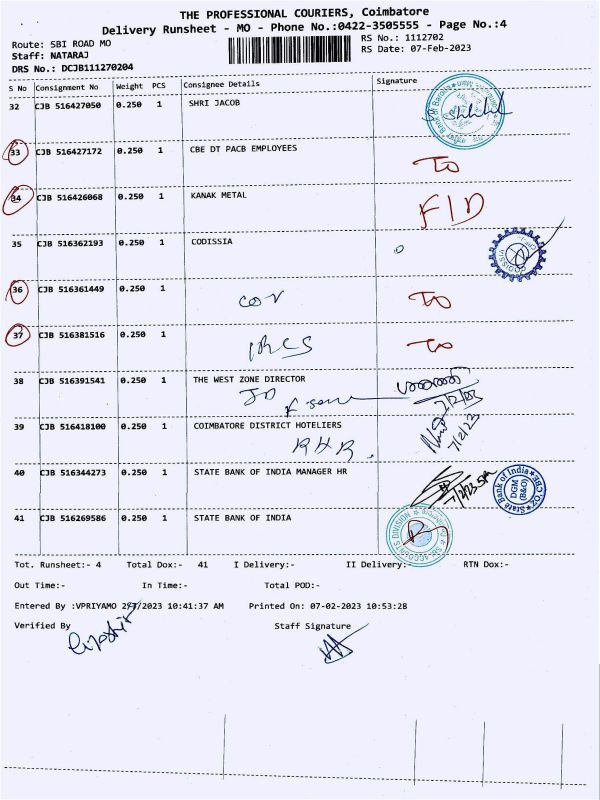 THE PROFESSIONAL COURIERS, Coimbatore
Delivery Runsheet - MO - Phone No.:0422-3505555 - Page No.:4
Route: SBI ROAD MO
RS No.: 1112702
Staff: NATARAJ
RS Date: 07-Feb-2023
DRS No.: DCJB111270204
S No Consignment No Weight PCS Consignee Details Signature
32 CJB 516427050 0.250 1 SHRI JACOB
33 CJB 516427172 0.250 1 CBE DT PACB EMPLOYEES TO
34 CJB 516426068 0.250 1 KANAK METAL F/D
35 CJB 516362193 0.250 1 CODISSIA
CODISSIA
36 CJB 516361449 0.250 1 COV TO
37 CJB 516381516 0.250 1 IRCS TO
38 CJB 516391541 0.250 1 THE WEST ZONE DIRECTOR
39 CJB 516418100 0.250 1 COIMBATORE DISTRICT HOTELIERS
7/2/23
40 CJB 516344273 0.250 1 STATE BANK OF INDIA MANAGER HR
State Bank of India
DGM
(B&O)
ZO, CBE
41 CJB 516269586 0.250 1 STATE BANK OF INDIA
ACCOUNTS DIVISION
Tot. Runsheet:- 4 Total Dox:- 41 I Delivery:- II Delivery:- RTN Dox:-
Out Time:- In Time:- Total POD:-
Entered By :VPRIYAMO 2/7/2023 10:41:37 AM Printed On: 07-02-2023 10:53:28
Verified By Staff Signature